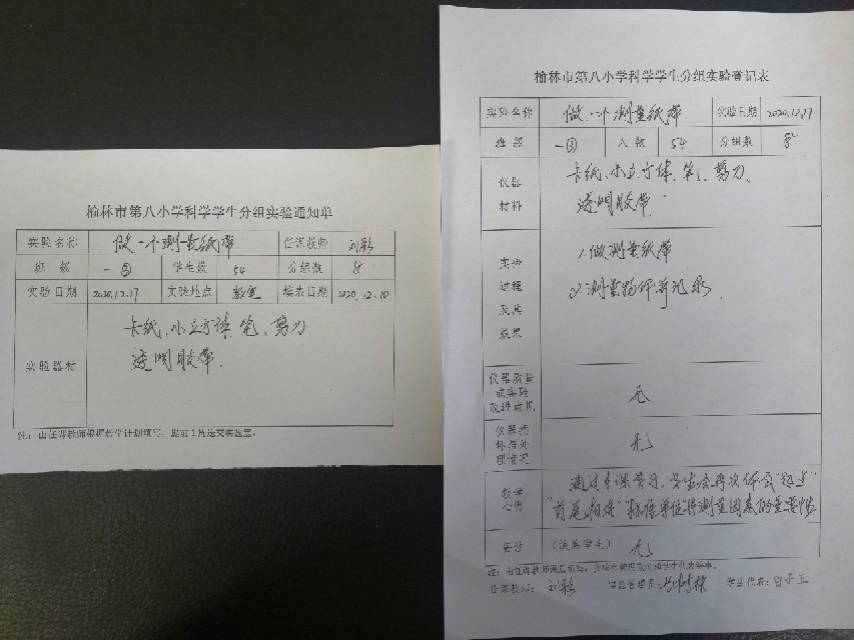 榆林市第八小学科学学生分组实验通知单
实验名称 做一个测量纸带 任课教师 刘彩
班 级 一④ 学生数 54 分组数 8
实验日期 2020.12.17 实验地点 教室 填表日期 2020.12.10
实验器材
卡纸、小立方体、笔、剪刀
透明胶带.
注：由任课教师根据教学计划填写，提前1周送交实验室。
榆林市第八小学科学学生分组实验登记表
实验名称 做一个测量纸带 实验日期 2020.12.17
班 级 一④ 人 数 54 分组数 8
仪器
材料
卡纸、小立方体、笔、剪刀、
透明胶带.
实验
过程
及其
效果
1.做测量纸带
2.测量物体并记录.
无
无
教学
心得
通过本课学习，学生会再次体会“起点”
“首尾相连”“标准单位”等测量因素的重要性.
备注 (缺席学生) 无
任课教师： 刘彩 实验管理员： 学生代表：